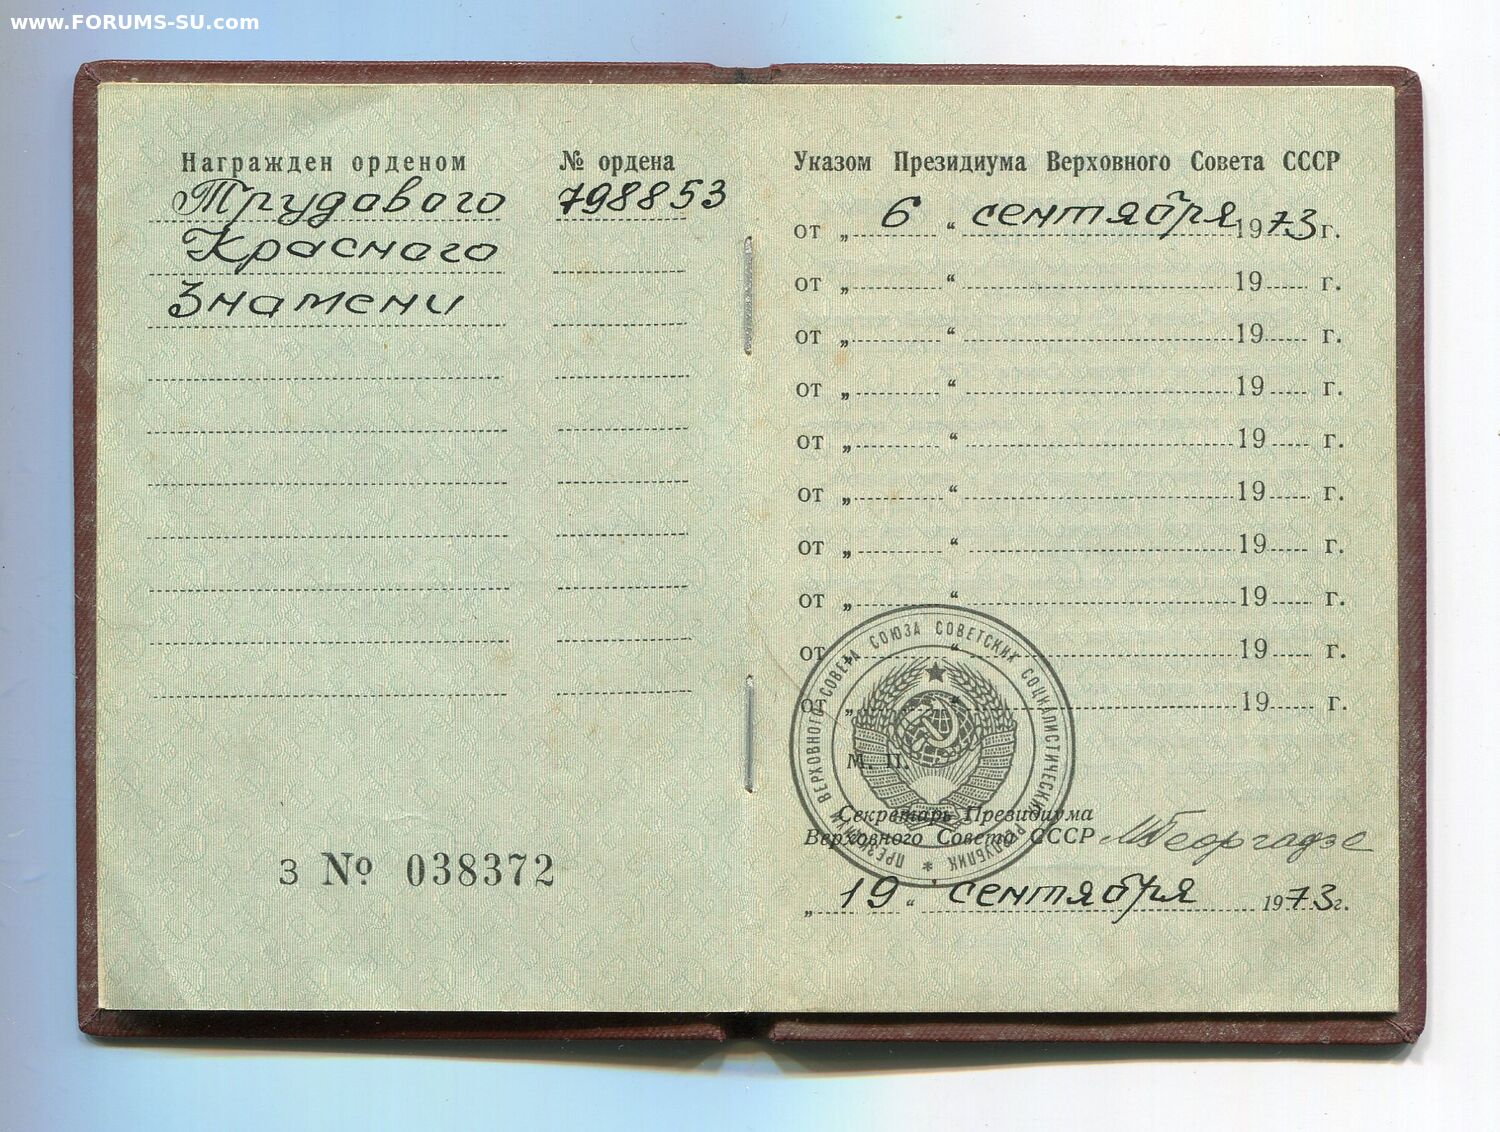 www.FORUMS-SU.com
Награжден орденом
№ ордена
Трудового
798853
Красного
Знамени
З № 038372
Указом Президиума Верховного Совета СССР
от „ 6 “ сентября 1973 г.
от „ “ 19 г.
от „ “ 19 г.
от „ “ 19 г.
от „ “ 19 г.
от „ “ 19 г.
от „ “ 19 г.
от „ “ 19 г.
от „ “ 19 г.
от „ “ 19 г.
ПРЕЗИДИУМ ВЕРХОВНОГО СОВЕТА СОЮЗА СОВЕТСКИХ СОЦИАЛИСТИЧЕСКИХ РЕСПУБЛИК *
М. П.
Секретарь Президиума
Верховного Совета СССР МГеоргадзе
„ 19 “ сентября 1973 г.